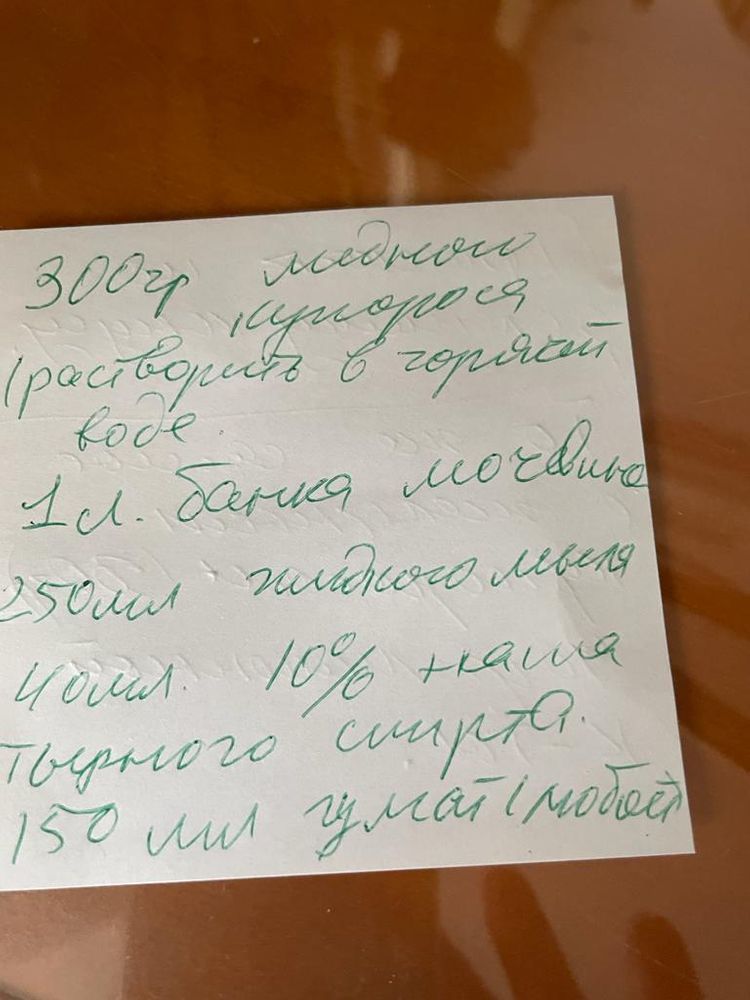 300гр медного
купороса
(растворить в горячей
воде.
1л. банка мочевина
250мл жидкого мыла
40мл. 10% наша
тырного спирта.
150 мл гумат (любой)